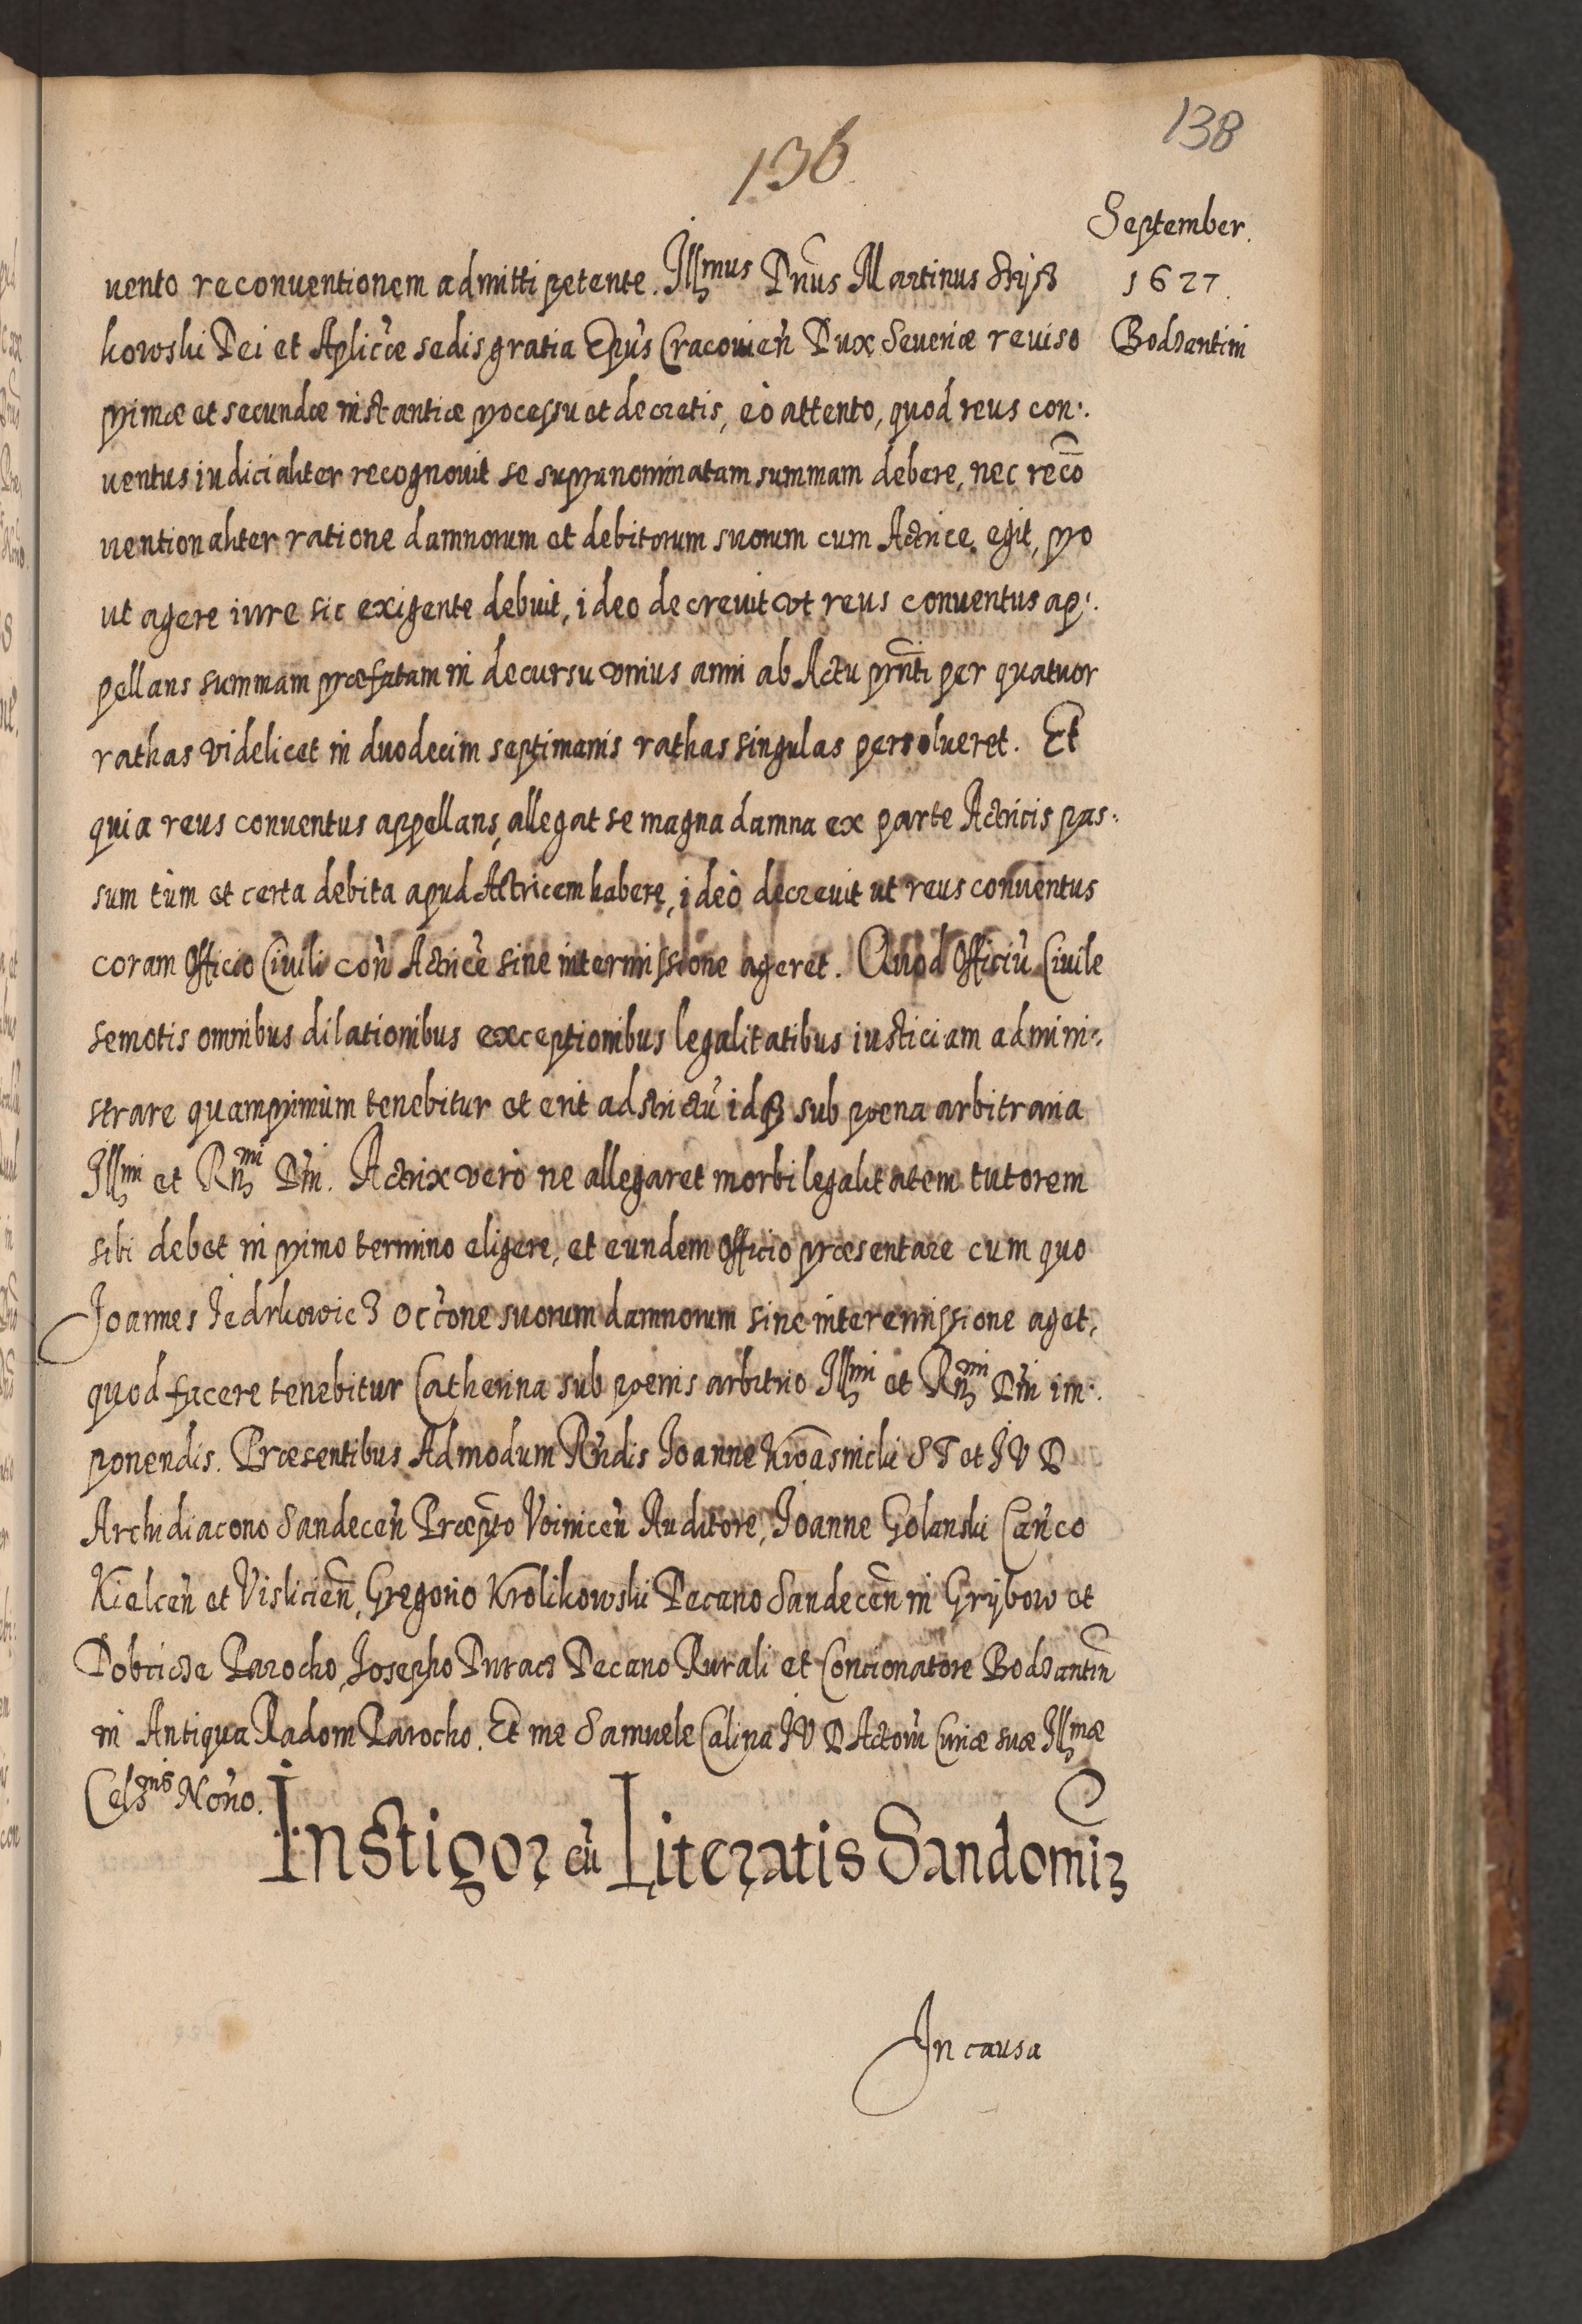 138
136
September.
1627.
Bodzantini
uento reconuentionem admitti petente. Illmus Dnus Martinus Szysz
kowski Dei et Aplicæ sedis gratia Epus Cracouien Dux Seueriæ reuiso
primæ et secundæ instantiæ processu et decretis, eò attento, quod reus con:
uentus iudicialiter recognouit se supranominatam summam debere, nec reco
uentionaliter ratione damnorum et debitorum suorum cum Actrice egit, pro
ut agere iure sic exigente debuit, ideo decreuit vt reus conuentus ap:
pellans summam præfatam in decursu vnius anni ab Actu prnti per quatuor
rathas videlicet in duodecim septimanis rathas singulas persolueret. Et
quia reus conuentus appellans, allegat se magna damna ex parte Actricis pas:
sum tùm et certa debita apud Actricem habere, ideò decreuit ut reus conuentus
coram Officio Ciuili con Actrice sine intermissione ageret. Quod Officiu Ciuile
semotis omnibus dilationibus exceptionibus legalitatibus iusticiam admini:
strare quamprimùm tenebitur et erit adstrictu idq sub poena arbitraria
Illmi et Rnmi Dni. Actrix verò ne allegaret morbi legalitatem tutorem
sibi debet in primo termino eligere, et eundem Officio præsentare cum quo
Joannes Jedrkowicz occone suorum damnorum sine interemissione aget,
quod facere tenebitur Catherina sub poenis arbitrio Illmi et Rnmi Dni im:
ponendis. Præsentibus Admodum Rndis Joanne Kwasnicki S T et I V D
Archidiacono Sandecen Præpto Voinicen Auditore, Joanne Golanski Canco
Kielcen et Vislicien, Gregorio Krolikowski Decano Sandecen in Grybow et
Dobcicze Parocho, Josepho Duracz Decano Rurali et Concionatore Bodzantin
in Antiqua Radom Parocho. Et me Samuele Calina I V D Actoru Curiæ suæ Illmæ
Celsnis Norio.
Instigor cu Literatis Sandomir
In causa